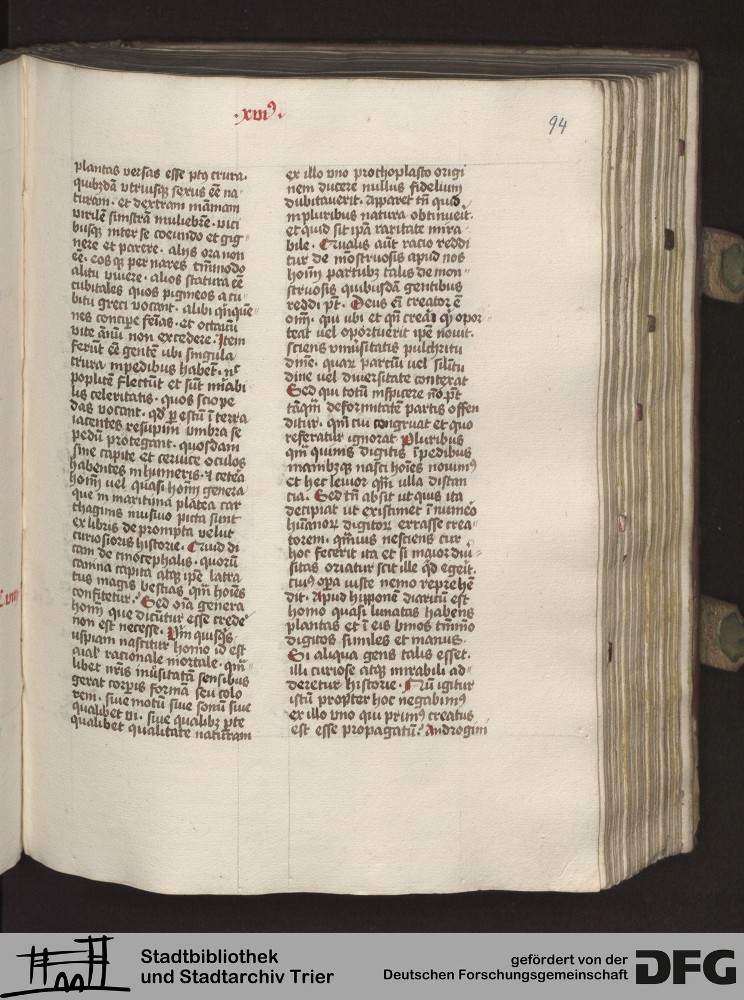 ·xvi⁹·
94
plantas versas esse pꝰ crura·
quibzdā vtriusqꝫ sexus eē na
turam· et dextram māmam
virilē sinistrā muliebrē· vici
busqꝫ inter se coeundo et gig
nere et parere· alijs ora non
eē· eos qꝫ per nares tm̄modo
alitu viuere· alios statura eē
cubitales quos pigmeos a cu
bitu greci vocant· alibi qn̄que
nes concipe feīas· et octauū
vite ānū non excedere· Item
ferūt eē gentē vbi singula
crura in pedibus habēt· nc̄
poplitē flectūt et sūt mīabi
lis celeritatis· quos sciope
das vocant· qd̓ ꝑ estū ī terra
iacentes resupini vmbra se
pedū protegant· quosdam
sine capite et ceruice oculos
habentes in humeris· ⁊ cetēa
hoīm vel quasi hoīm genera
que in maritima platea car
thaginis musiuo picta sunt
ex libris de prompta velut
curiosioris historie· Quid di
cam de cinocephalis· quorū
canina capita atqꝫ ipē latra
tus magis bestias qm̄ hoīes
confitetur· Sed oīa genera
hoīm que dicūtur esse crede
non est necesse· Vm̄ quisqꝫs
uspiam nascitur homo id est
aīal racionale mortale· qm̄
libet nr̄is inusitatā sensibus
gerat corpīs formā seu colo
rem· siue motū siue sonū siue
qualibet vi· siue qualibꝫ ꝑte
qualibet qualitate naturam
ex illo vno prothoplasto origi
nem ducere nullus fidelium
dubitauerit· Apparet tn̄ quid
in pluribus natura obtinueit
et quid sit ip̄a raritate mira
bile· Qualis aūt racio reddi
tur de mōstruosis apud nos
hoīm partubꝫ talis de mon
struosis quibusdā gentibus
reddi pt̄· Deus eī creator ē
oīm· qui vbi et qn̄ creāi qͥ opor
teat vel oportuerit ipē nouit·
sciens vniūsitatis pulchritu
dinē· quaꝝ partiū vel silitu
dine vel diuersitate contexat
Sed qui totū inspicere nō pt̄
tāqm̄ deformitatē partis offen
ditur· qm̄ cui congruat et quo
referatur ignorat Pluribus
qm̄ quinis digitis ī pedibus
manibꝫqꝫ nasci hoīes nouim⁹
et hec leuior qm̄ ulla distan
cia· Sed tn̄ absit ut quis ita
decipiat ut existimet ī numēo
hūanoꝝ digitoꝝ errasse crea
torem· qm̄uis nesciens cur
hoc fecerit ita et si maior diū
sitas oriatur scit ille qd̓ egerit·
cui⁹ oꝑa iuste nemo reprehē
dit· Apud hipponē diaricū est
homo quasi lunatas habens
plantas et ī eis binos tm̄mō
digitos similes et manus·
Si aliqua gens talis esset·
illi curiose atqꝫ mirabili ad
deretur historie· Nū igitur
istū propter hoc negabim⁹
ex illo vno qui prim⁹ creatus
est esse propagatū? Androgini
Stadtbibliothek
und Stadtarchiv Trier
gefördert von der
Deutschen Forschungsgemeinschaft
DFG